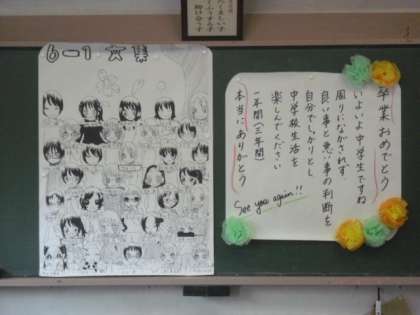 6-1 女集
卒業おめでとう
いよいよ中学生ですね
周りにながされず
良い事と悪い事の判断を
自分でしっかりとし
中学校生活を
楽しんでください
1年間(三年間)
本当にありがとう
See you again!!